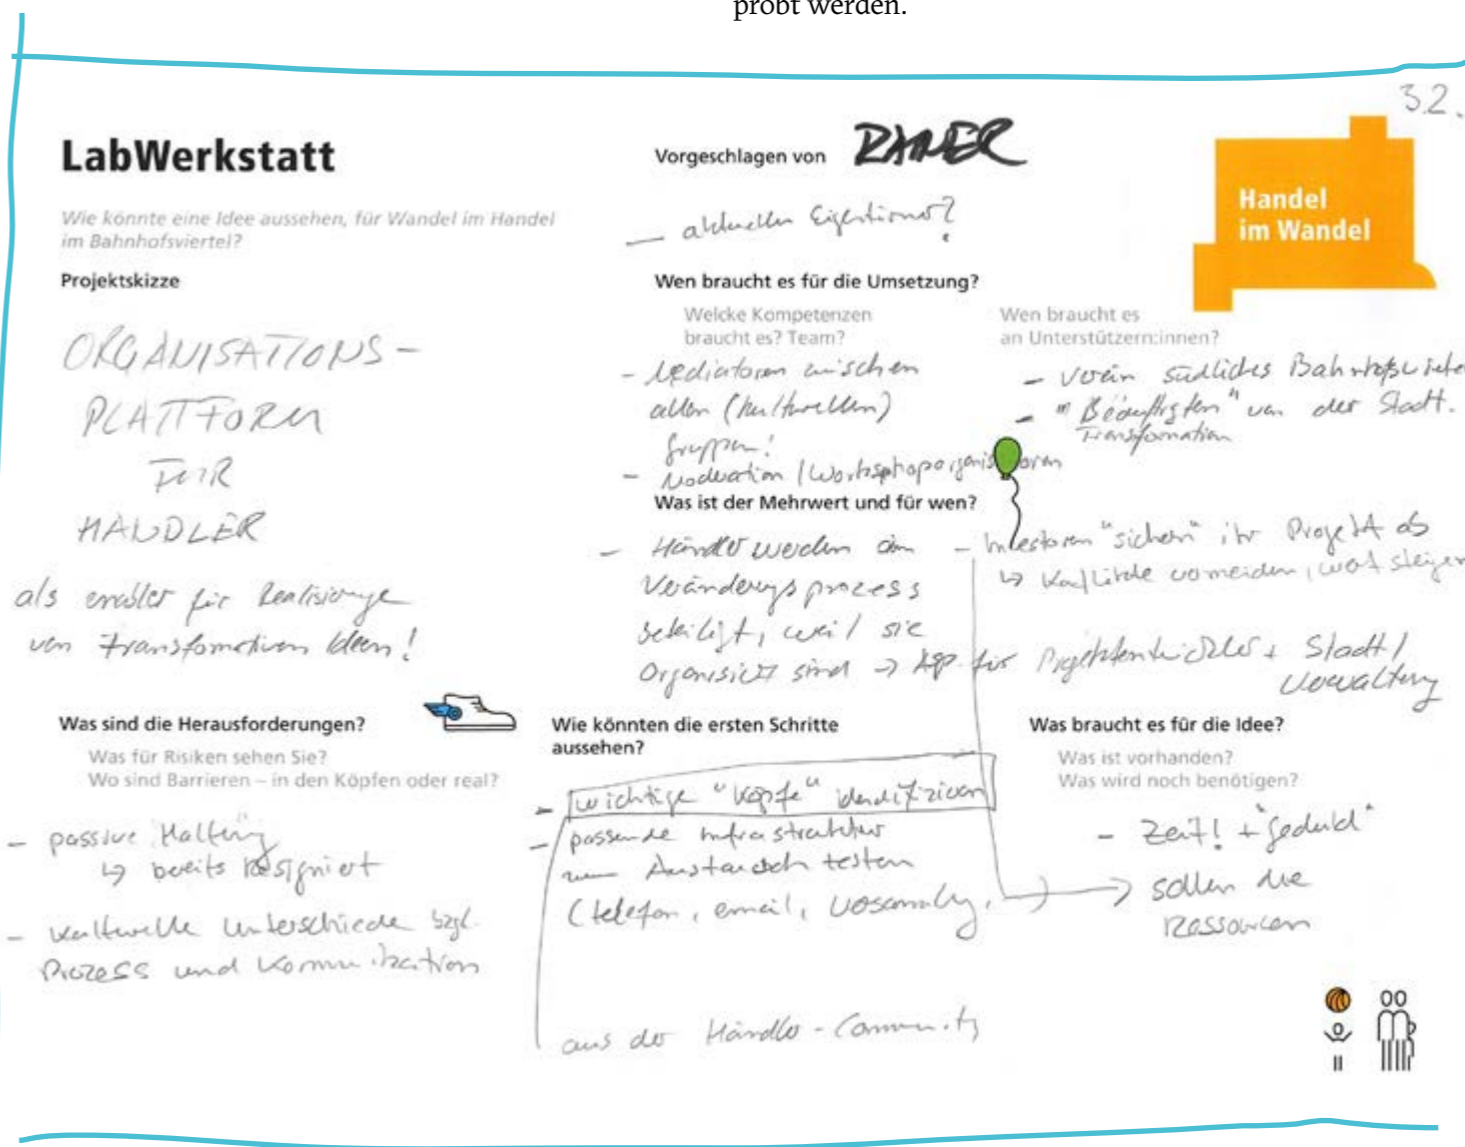 probt werden.
32.
LabWerkstatt
Wie könnte eine Idee aussehen, für Wandel im Handel
im Bahnhofsviertel?
Projektskizze
ORGANISATIONS-
PLATTFORM
FÜR
HÄNDLER
als enabler für Realisierunge
von transformativen Ideen!
Vorgeschlagen von
— aktuellen Eigentümer?
Handel
im Wandel
Wen braucht es für die Umsetzung?
Welcke Kompetenzen
braucht es? Team?
- Mediatoren zwischen
allen (kulturellen)
Gruppen!
- Moderation / Workshoporganisatoren
Wen braucht es
an Unterstützern:innen?
- Verein südliches Bahnhofsviertel
- "Beauftragten" von der Stadt.
Transformation
Was ist der Mehrwert und für wen?
- Händler werden am
Veränderungsprozess
beteiligt, weil sie
Organisiert sind → Asp. für Projektentwickler + Stadt/
Verwaltung
- Investoren "sichern" ihr Projekt ab
↳ Konflikte vermeiden, Wert steigern
Was sind die Herausforderungen?
Was für Risiken sehen Sie?
Wo sind Barrieren – in den Köpfen oder real?
- passive Haltung
↳ bereits resigniert
- kulturelle Unterschiede bzgl.
Prozess und Kommunikation
Wie könnten die ersten Schritte
aussehen?
- wichtige "Köpfe" identifizieren
- passende Infrastruktur
zum Austausch testen
(telefon, email,
aus der Händler-Community
Was braucht es für die Idee?
Was ist vorhanden?
Was wird noch benötigen?
- Zeit! + "Geduld"
→ sollen die
Ressourcen